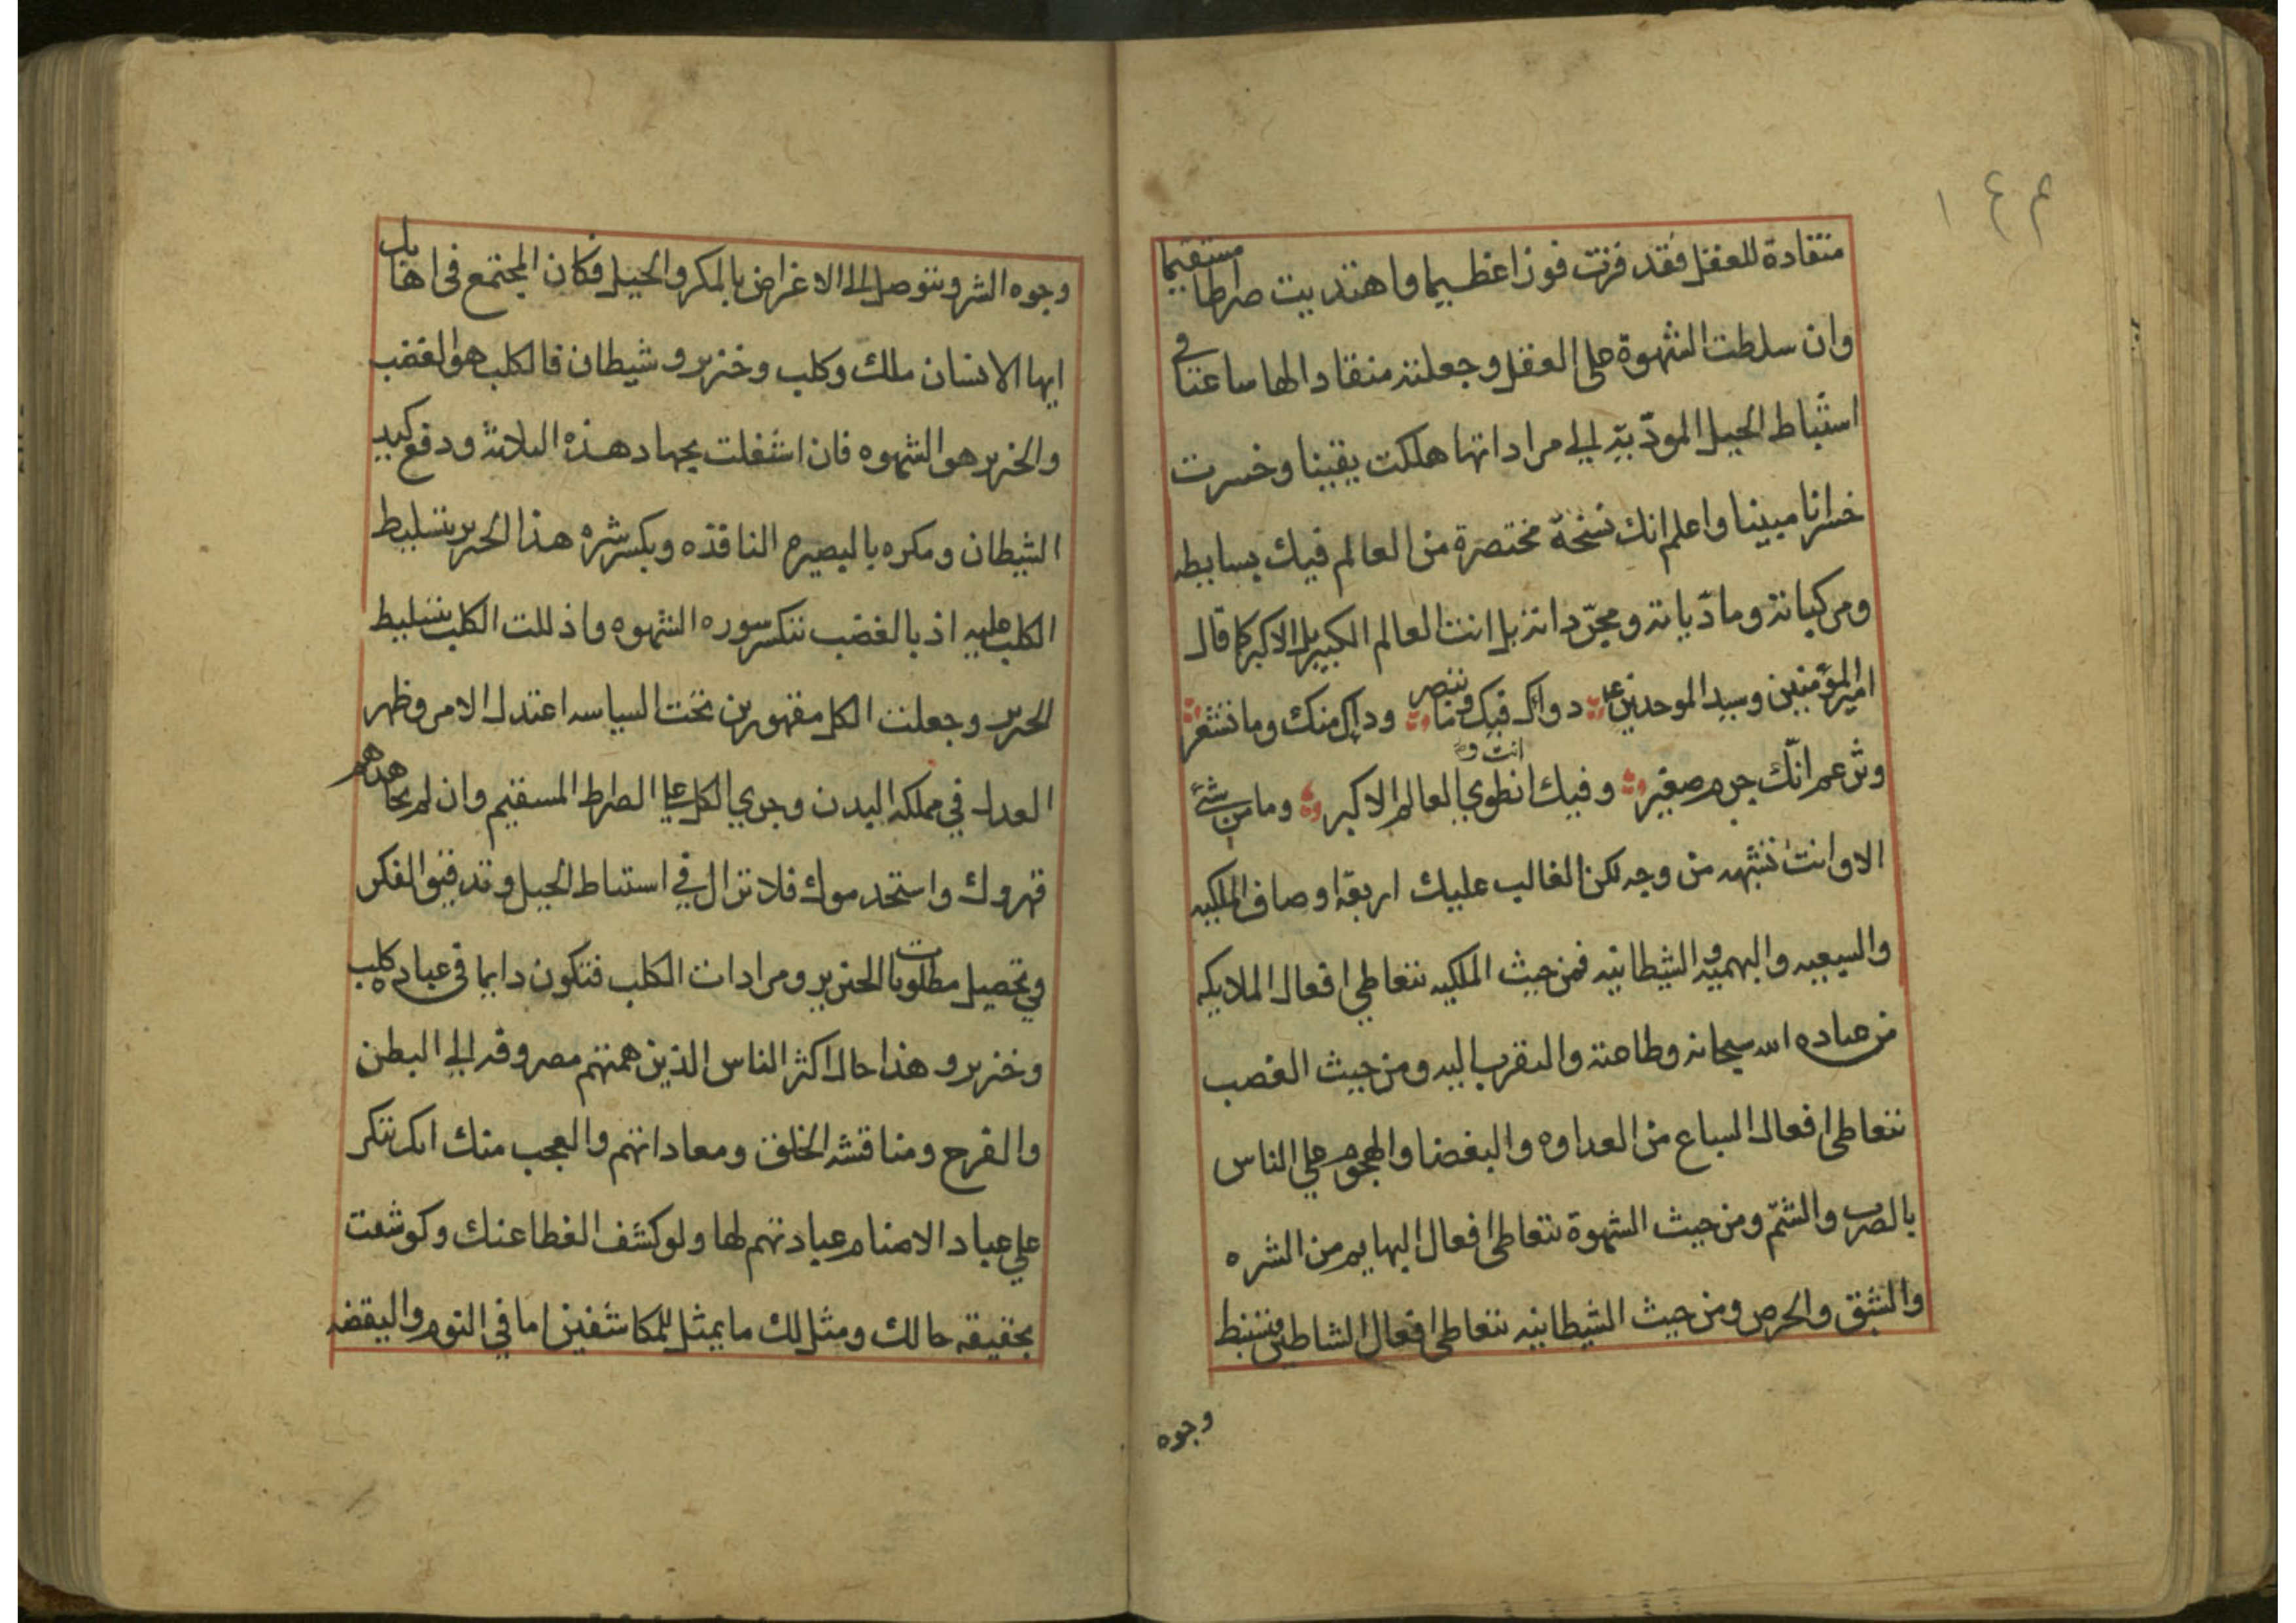 ١٤٣
منقادة للعقل فقد فزت فوزا عظيما واهتديت صراطا مستقيما
وان سلطت الشهوة على العقل وجعلته منقادا لها ساعتا في
استنباط الحيل المودّيه الي مراداتها هلكت يقينا وخسرت
خسرانا مبينا واعلم انك نسخة مختصرة من العالم فيك بسايطه
ومركباته ومادّياته ومجرّداته بل انت العالم الكبير بل الاكبر كما قال
امير المؤمنين وسيد الموحدين ع دواك فيك وما تبصر ودآك منك وما تشعر
وتزعم انّك جرم صغير وفيك انطوي العالم الاكبر وما من شئ
الا وانت تشبهه من وجه لكن الغالب عليك اربعة اوصاف الملكيه
والسبعيه والبهميه والشيطانيه فمن حيث الملكيه تتعاطي افعال الملايكه
من عباده الله سبحانه وطاعته والتقرب اليه ومن حيث الغضب
تتعاطى افعال السباع من العداوه والبغضا والهجوم علي الناس
بالضرب والشتم ومن حيث الشهوة تتعاطى افعال البهايم من الشره
والشبق والحرص ومن حيث الشيطانيه تتعاطى افعال الشاطين فتستنبط
وجوه
وجوه الشر وتتوصل الى الاغراض بالمكر والحيل فكان المجتمع في اهابك
ايها الانسان ملك وكلب وخنزير وشيطان فالكلب هو الغضب
والخنزير هو الشهوه فان اشغلت بجهاد هذه الثلاثة ودفع كيد
الشيطان ومكره بالبصيره النافذه وبكسر شره هذا الخنزير بتسليط
الكلب عليه اذ بالغضب تنكسر سوره الشهوه واذللت الكلب بتسليط
الخنزير وجعلت الكل مقهورين تحت السياسه اعتدل الامر وظهر
العدل في مملكه البدن وجري الكل علي الصراط المسقيم وان لم تجاهدهم
قهروك واستخدموك فلا تزال في استنباط الحيل وتدقيق الفكر
في تحصيل مطلوبات الخنزير ومرادات الكلب فتكون دايما في عباده كلب
وخنزير وهذا حال اكثر الناس الذين همتهم مصروفه الي البطن
والفرج ومناقشه الخلق ومعاداتهم والعجب منك انك تنكر
علي عباد الاصنام عبادتهم لها ولو كشف الغطا عنك وكوشفت
بحقيقه حالك ومثل لك ما يمثل للمكاشفين اما في النوم واليقضه